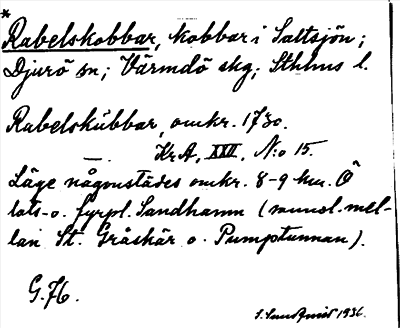 *
Rabelskobbar, kobbar i Saltsjön;
Djurö sn; Värmdö skg; Sthlms l.
Rabelskubbar, omkr. 1730.
—. Kr.A, XVI, N:o 15.
Läge någonstädes omkr. 8-9 km. Ö
lots- o. fyrpl. Sandhamn (
lan St. Gråskär o. Pumptunnan).
G. 76.
S. Sundqvist 1936.